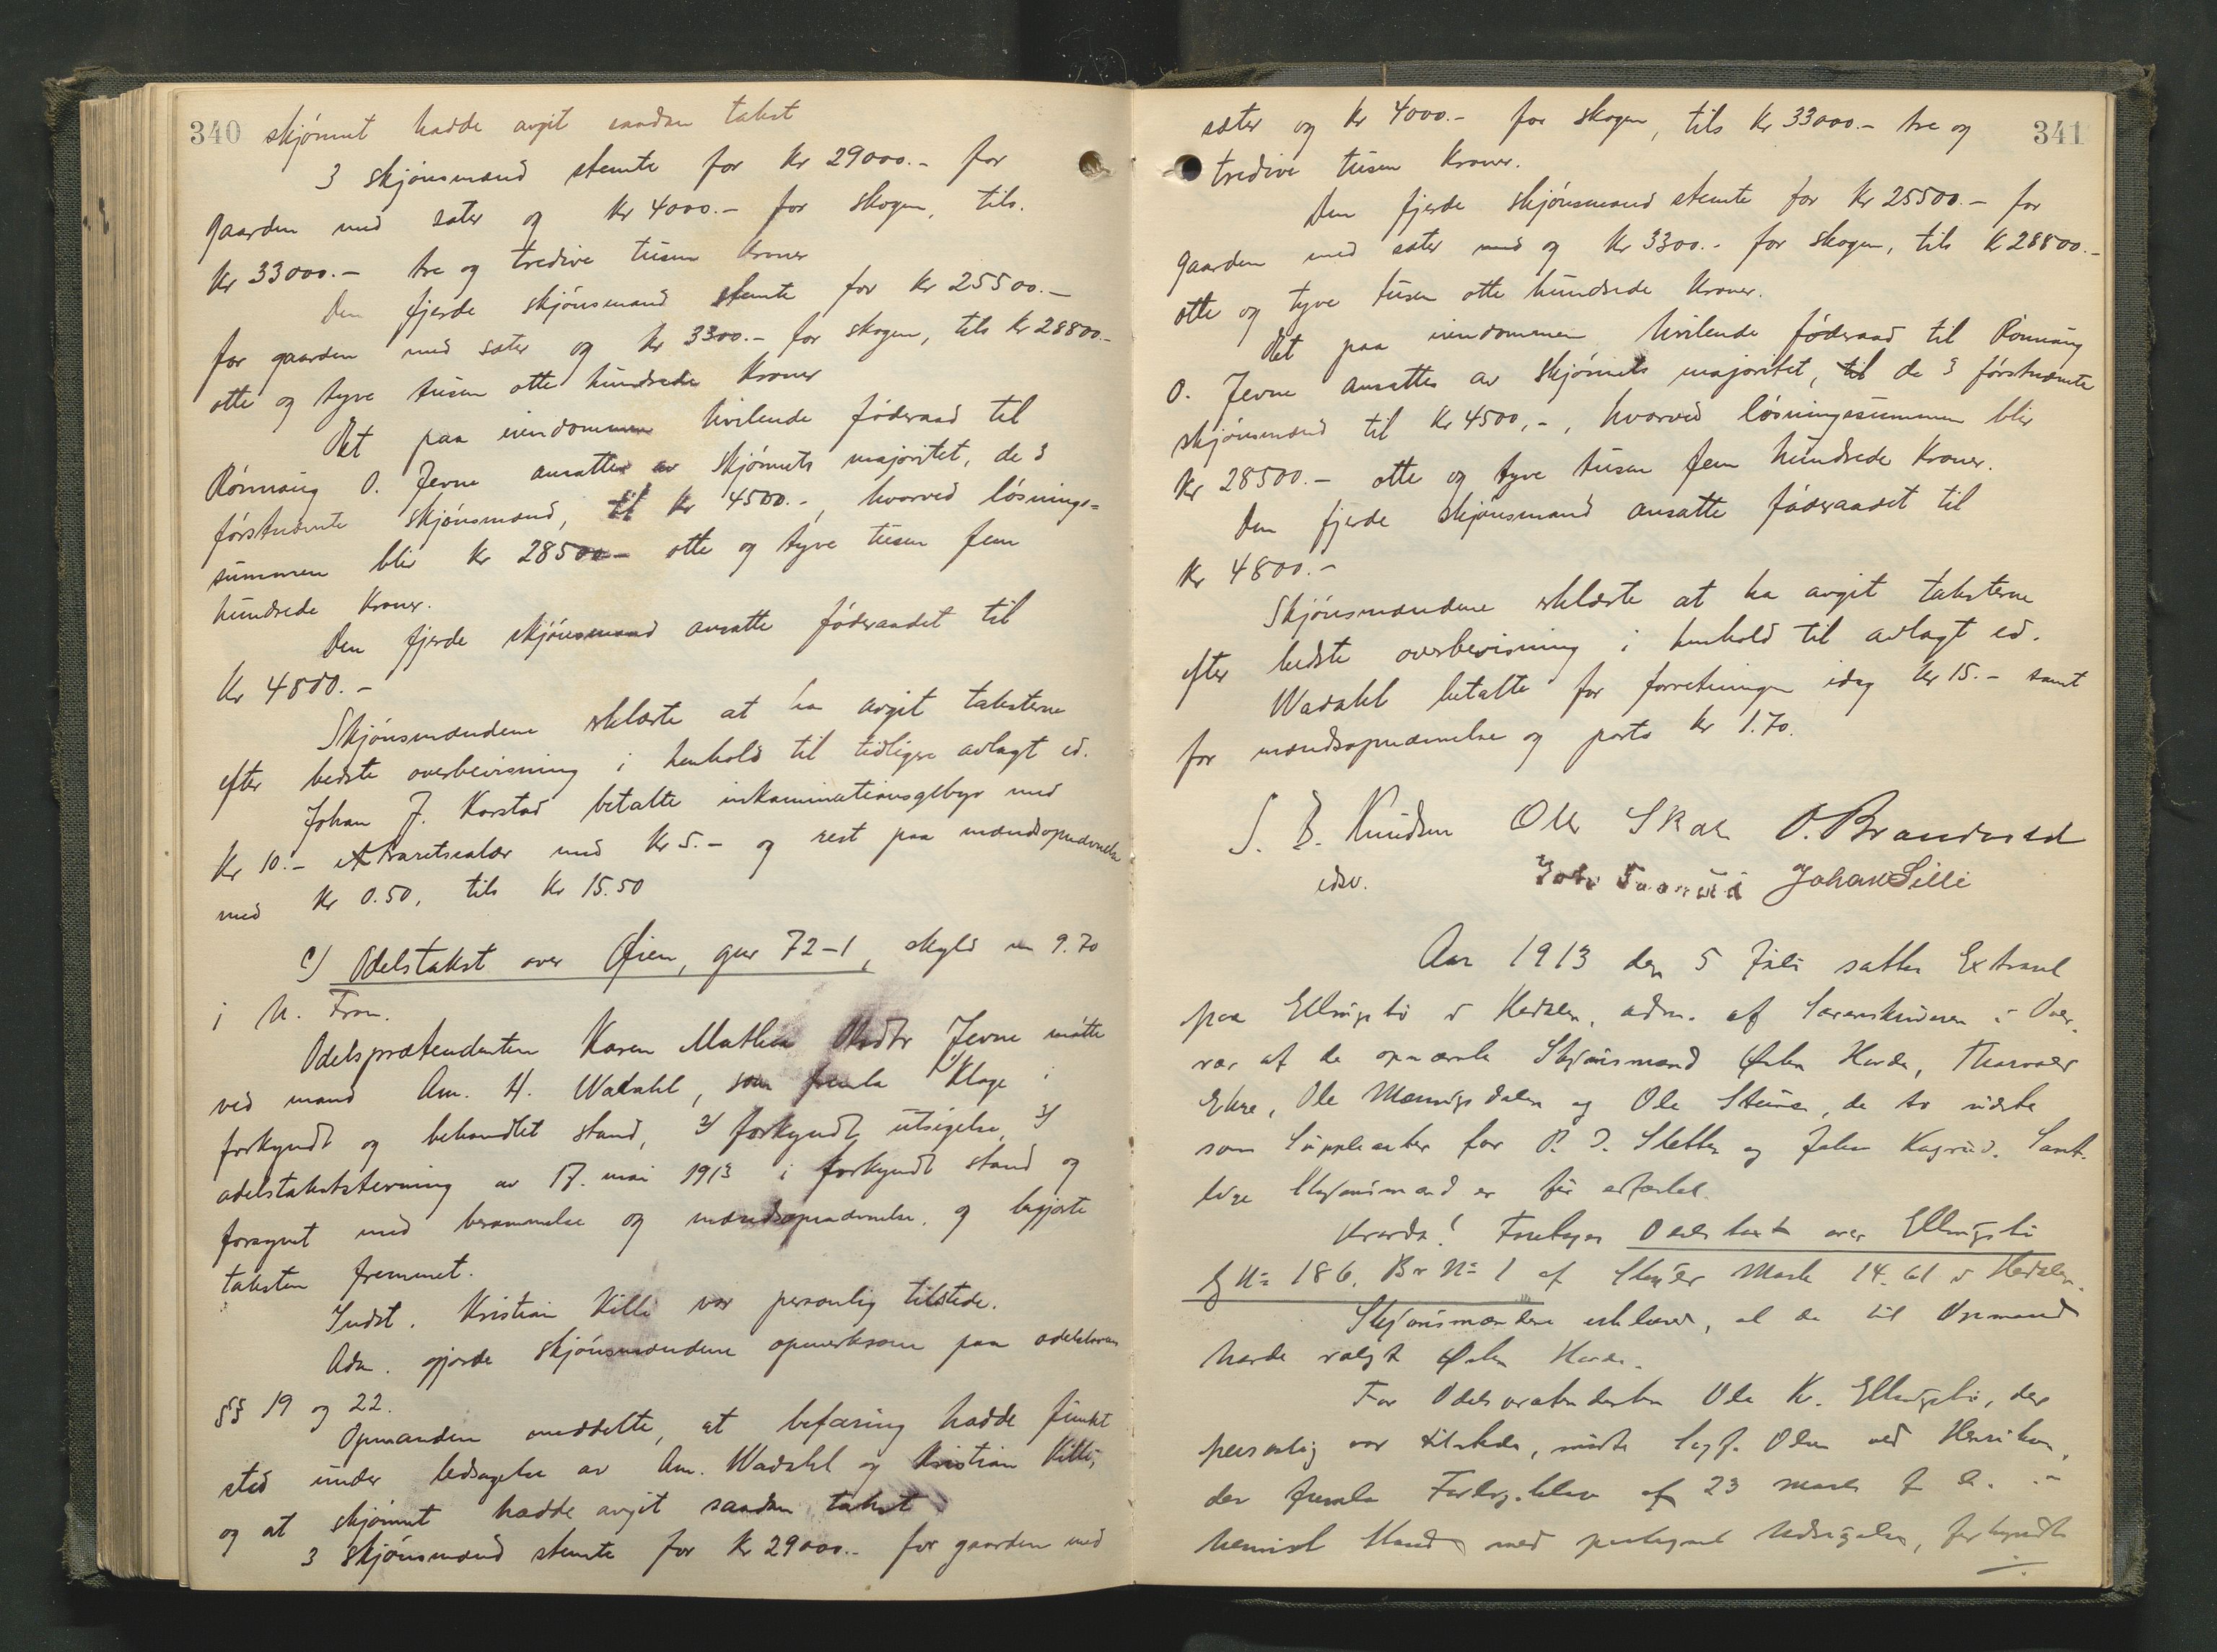 340 skjønnet hadde avgit saadan takst
3 skjønsmænd stemte for Kr 29000.- for
gaarden med sæter og Kr 4000.- for skogen, tils.
Kr 33000.- tre og tredive tusen kroner
Den fjerde skjønsmand stemte for Kr 25500.-
for gaarden med sæter og Kr 3300.- for skogen, tils Kr 28800.-
otte og tyve tusen otte hundrede Kroner
Det paa eiendommen hvilende føderaad til
Rønnaug O. Jevne ansattes av skjønnets majoritet, de 3
førstnævnte skjønsmænd, til Kr 4500.-, hvorved løsnings=
summen blir Kr 28500.- otte og tyve tusen fem
hundrede Kroner.
Den fjerde skjønsmand ansatte føderaadet til
Kr 4800.-
Skjønsmændene erklærte at ha avgit taksterne
efter bedste overbevisning i henhold til tidligere avlagt ed.
Johan J. Korstad betalte inkaminationsgebyr med
Kr 10.- extraretssalær med Kr 5.- og rest paa mændsopnævnelse
med Kr 0.50, tils Kr 15.50
c) Odelstakst over Øien, gnr 72-1, skyld m 9.70
i N. Fron.
Odelsprætendenten Karen Mathea Jevne møtte
ved mand Am. H. Wadahl, som fremla 1) Klage i
forkyndt og behandlet stand, 2) forkyndt utsigelse 3)
odelstakststevning av 17. mai 1913 i forkyndt stand og
forsynet med berammelse og mændsopnævnelse, og begjærte
taksten fremmet.
Indst. Kristian Killi var personlig tilstede.
Adm. gjorde skjønsmændene opmerksom paa odelsloven
§§ 19 og 22.
Opmanden meddelte, at befaring hadde funnet
sted under ledsagelse av Am. Wadahl og Kristian Killi,
og at skjønnet hadde avgit saadan takst
3 skjønsmænd stemte for Kr 29000.- for gaarden med
341
sæter og Kr 4000.- for skogen, tils Kr 33000.- tre og
tredive tusen Kroner.
Den fjerde skjønsmand stemte for Kr 25500.- for
gaarden med sæter med og Kr 3300.- for skogen, tils Kr 28800.-
otte og tyve tusen otte hundrede Kroner.
Det paa eiendommen hvilende føderaad til Rønnaug
O. Jevne ansattes av skjønnets majoritet, til de 3 førstnævnte
skjønsmænd til Kr 4500,-, hvorved løsningssummen blir
Kr 28500.- otte og tyve tusen fem hundrede Kroner.
Den fjerde skjønsmand ansatte føderaadet til
Kr 4800.-
Skjønsmændene erklærte at ha avgit taksterne
efter bedste overbevisning i henhold til avlagt ed.
Wadahl betalte for forretningen idag Kr 15.- samt
for mændsopnævnelse og porto Kr 1.70.
S. B. Knudsen Ole Skar O. Brandvold
edsv. Johan Lilli
Aar 1913 den 5 Juli sattes Extraret
paa Ellingsbø i Hedalen, adm. af Sorenskriveren i Over-
vær af de opnævnte Skjønsmænd Haade, Thorvald
Ekre, Ole og Ole Steine, de to sidste
som Suppleanter for P. O. Sletten og Johan Kagrud. Samt-
lige Skjønsmænd er før edfæstet.
Hvorda! Foretages Odelstaxt over Ellingsbø
G No 186, Br No 1 af Skyld Mark 14.61 i Hedalen.
Skjønsmændene erklærede, at de til Opmand
havde valgt Haade.
For Odelsprætendenten Ole K. Ellingsbø, der
personlig var tilstede, mødte Sagf. Olsen ved Henriksen,
der fremla af 23 marts d. A. i
henvist Stand med paategnet Udsigelse, forkyndt